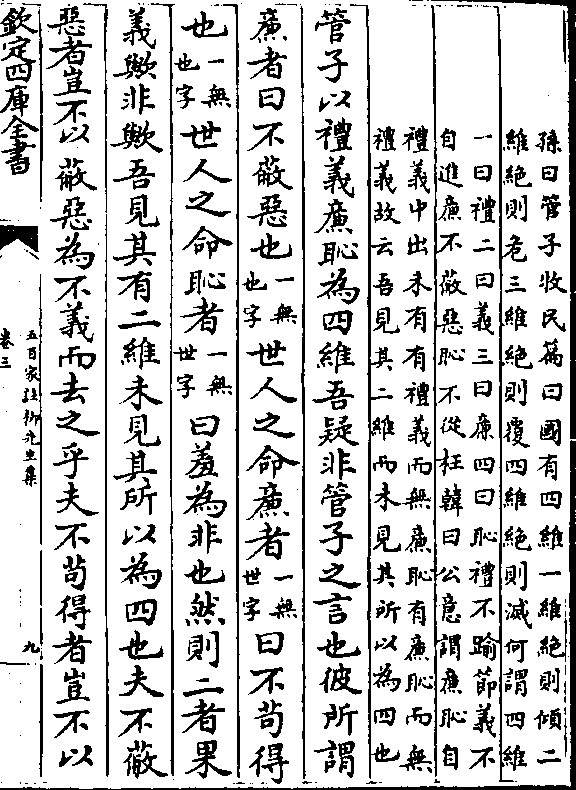 孫曰管子牧民篇曰國有四維一維絕則傾二
維絕則危三維絕則覆四維絕則滅何謂四維
一曰禮二曰義三曰廉四曰恥禮不踰節義不
自進廉不蔽惡恥不從枉韓曰公意謂廉恥自
禮義中出未有有禮義而無廉恥有廉恥而無
禮義故云吾見其二維而未見其所以為四也
管子以禮義廉恥為四維吾疑非管子之言也彼所謂
廉者曰不蔽惡也一無也字世人之命廉者一無世字曰不苟得
也一無也字世人之命恥者一無世字曰羞為非也然則二者果
義歟非歟吾見其有二維未見其所以為四也夫不蔽
惡者豈不以蔽惡為不義而去之乎夫不苟得者豈不以
欽定四庫全書
五百家註柳先生集
卷三
九